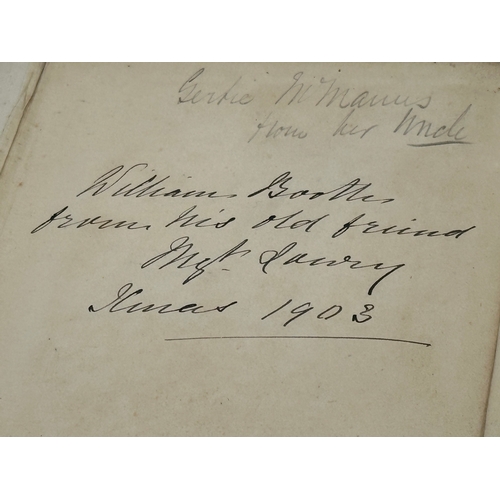 Gertie McManus
from her Uncle
William Booth
from his old friend
Mgt. Lowry
Xmas 1903